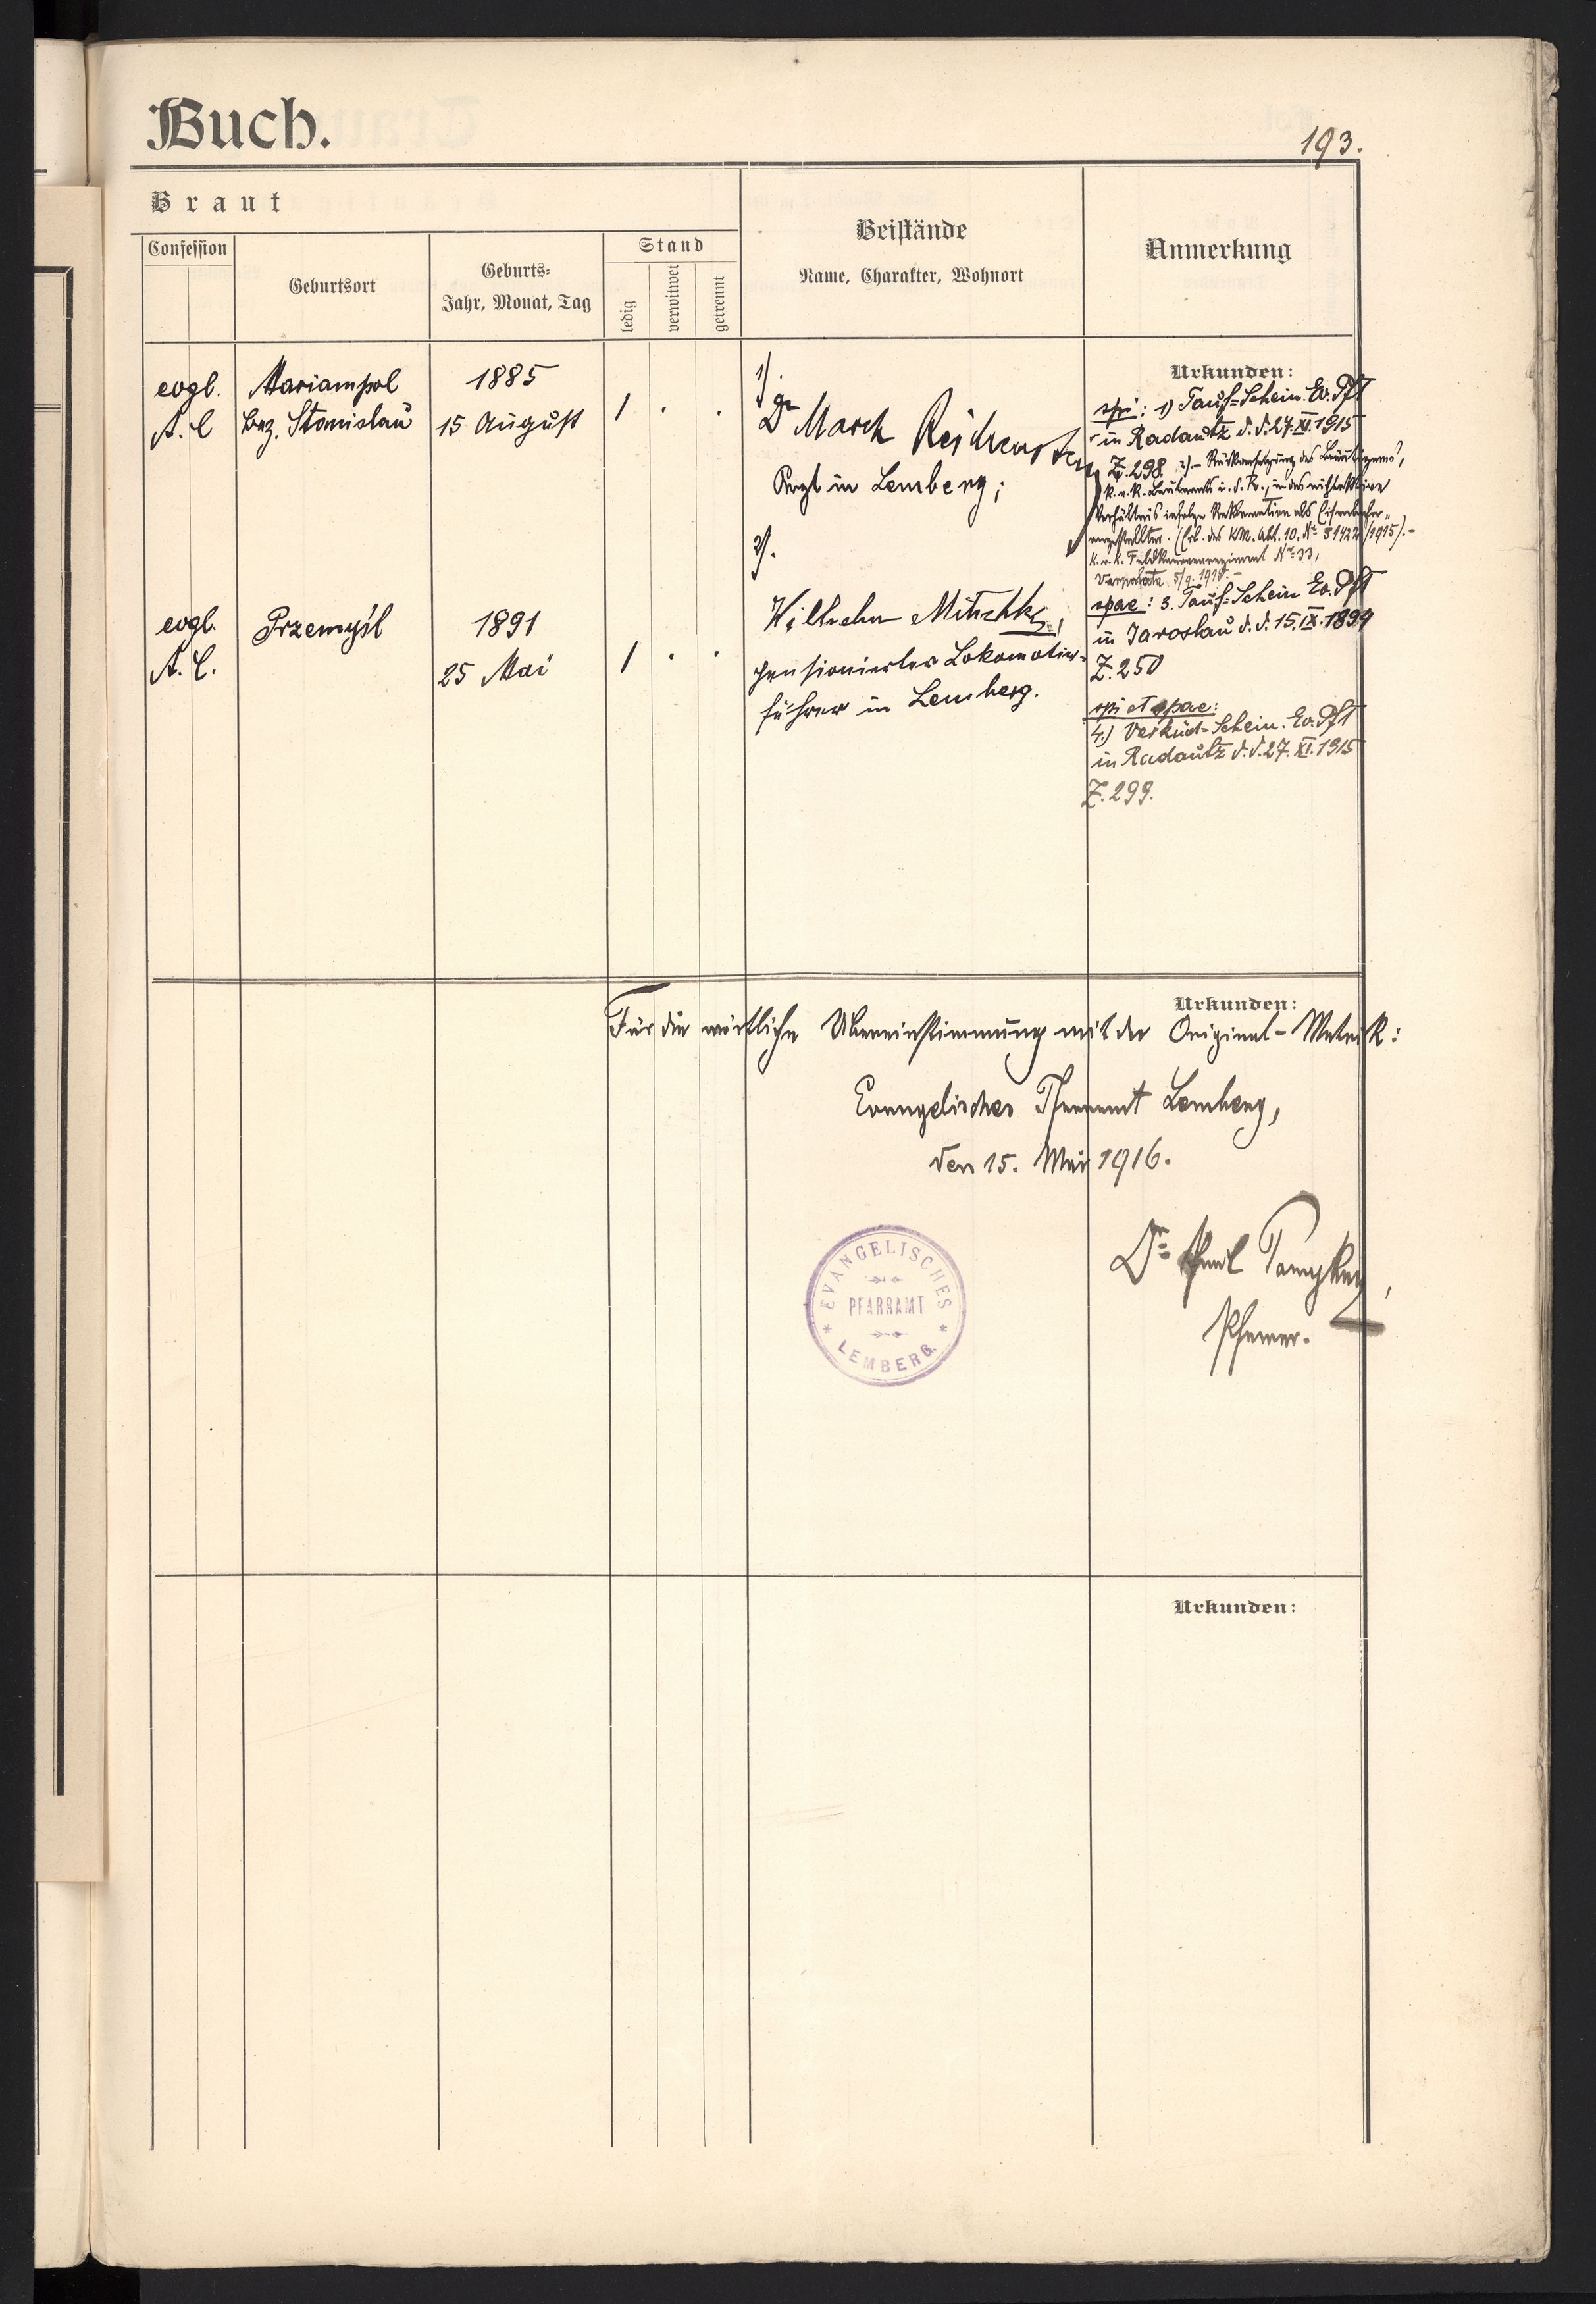 Buch.
193.
Braut
Confession
Geburtsort
Geburts-
Jahr, Monat, Tag
Stand
ledig
verwitwet
getrennt
Beistände
Name, Charakter, Wohnort
Anmerkung
evgl.
A. C
Mariampol
Bez. Stanislau
1885
15 August
1 . .
1).
Dr March
Arzt in Lemberg;
2).
Wilhelm Mitschke,
pensionierter Lokomotiv-
führer in Lemberg.
evgl.
A. C.
Przemyśl
1891
25 Mai
1 . .
Urkunden:
spi: 1) Tauf=Schein Ev. Pft
in Radautz d. d. 27. XI. 1915
Z. 298. 2) – des Bräutigams,
k. u. k. Leutnants i. d. R., in das nichtaktive
Verhältnis infolge als
(Erl. des KM. Abt. 10. No 1915). –
k. u. k. No 33,
spae: 3. Tauf=Schein Ev. Pft
in Jaroslau d. d. 15. IX. 1894
Z. 250
spi et spae:
4.) Verkünd=Schein. Ev. Pft
in Radautz d. d. 27. XI. 1915
Z. 299.
Urkunden:
Für die wörtliche Übereinstimmung mit der Original-Matrik:
Evangelisches Pfarramt Lemberg,
den 15. Mai 1916.
EVANGELISCHES
PFARRAMT
LEMBERG.
Dr
Pfarrer.
Urkunden: